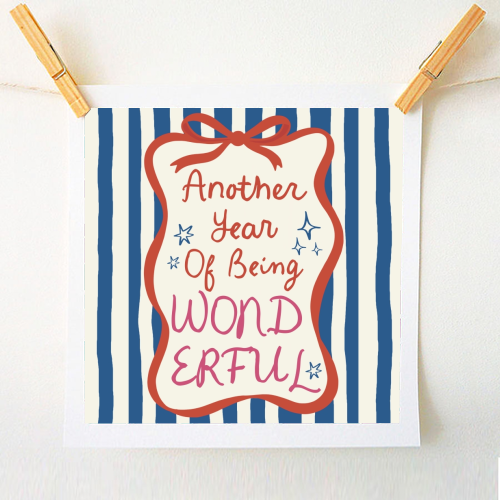 Another
Year
Of Being
WOND
ERFUL